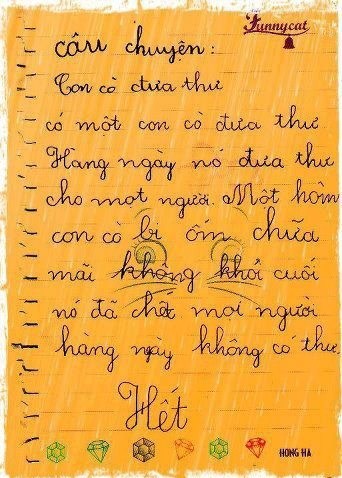 Funnycat
câu chuyện:
Con cò đưa thư
có một con cò đưa thư
Hàng ngày nó đưa thư
cho mọt người. Một hôm
con cò bị ốm chữa
mãi không khỏi cuối
nó đã chết mọi người
hàng ngày không có thư.
Hết
HONG HA